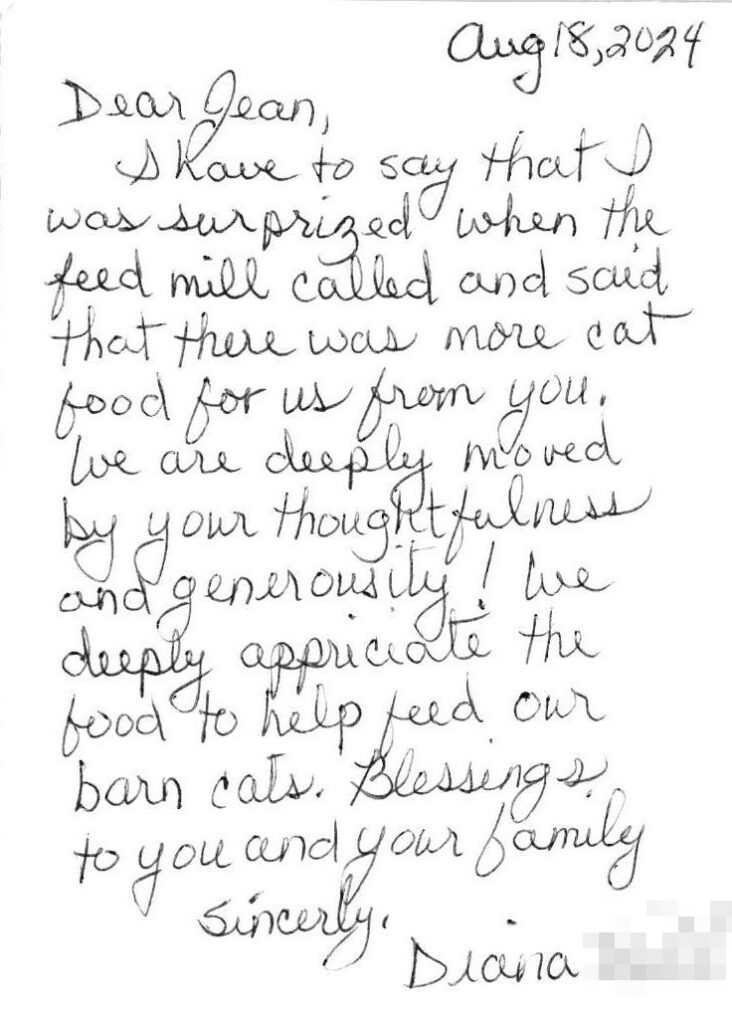 Aug 18, 2024
Dear Jean,
I have to say that I
was surprized when the
feed mill called and said
that there was more cat
food for us from you.
We are deeply moved
by your thoughtfulness
and generousity! We
deeply appriciate the
food to help feed our
barn cats. Blessings
to you and your family
sincerly.
Diana